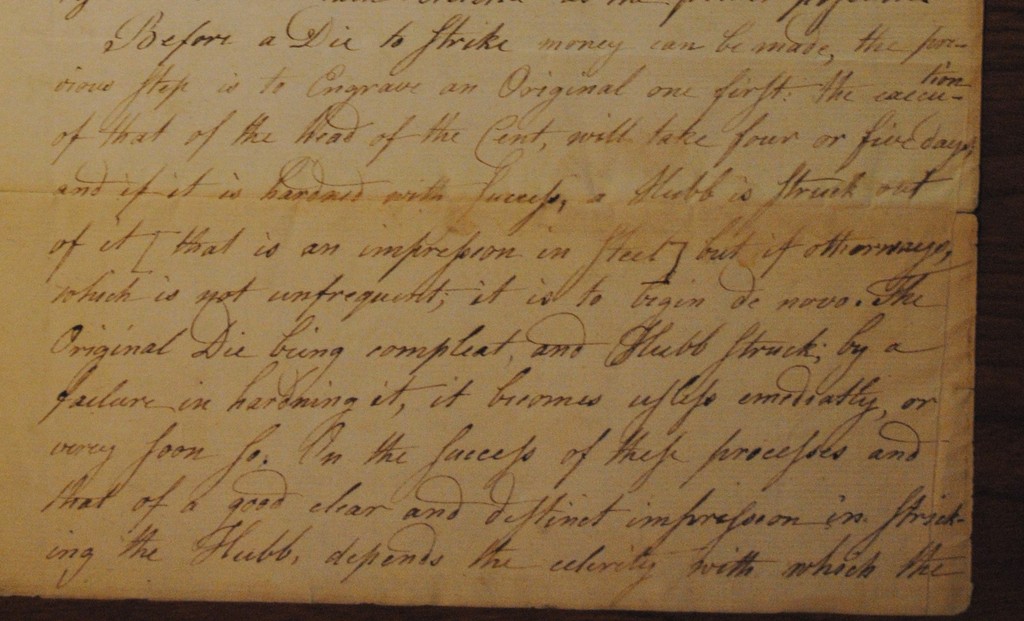 Before a Die to strike money can be made, the pre-
vious step is to Engrave an Original one first: the execu-
tion
of that of the head of the Cent, will take four or five days,
and if it is hardned with success, a Hubb is struck out
of it [that is an impression in steel] but if otherways,
which is not unfrequent, it is to begin de novo. The
Original Die being compleat, and Hubb struck; by a
failure in hardning it, it becomes usless emediatly, or
verey soon so. On the success of these processes and
that of a good clear and distinct impression in strick-
ing the Hubb, depends the celerity with which the